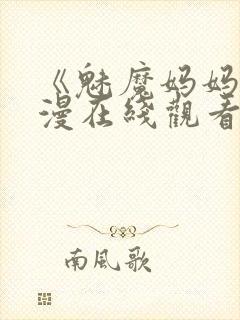 《魅魔妈妈
漫在线觀看
南風歌